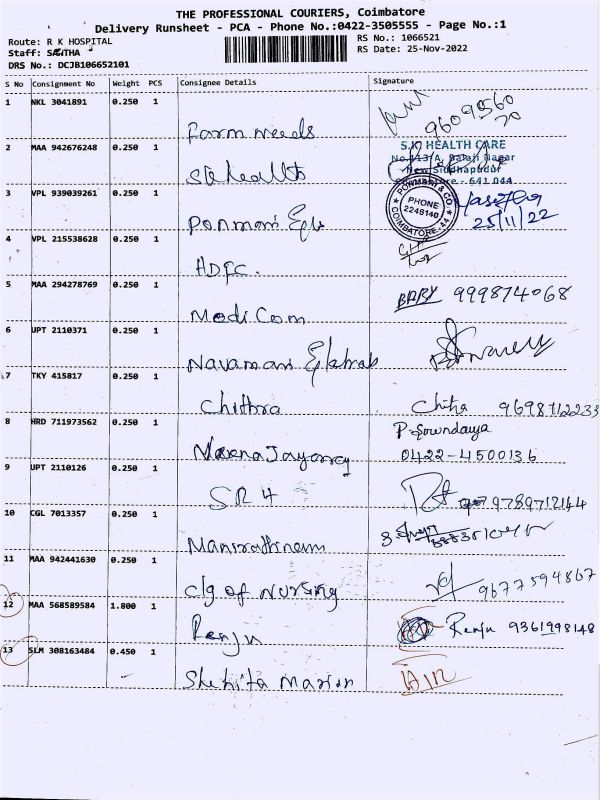 THE PROFESSIONAL COURIERS, Coimbatore
Delivery Runsheet - PCA - Phone No.:0422-3505555 - Page No.:1
Route: R K HOSPITAL
RS No.: 1066521
Staff:
RS Date: 25-Nov-2022
DRS No.: DCJB106652101
S No Consignment No Weight PCS Consignee Details Signature
1 NKL 3041891 0.250 1 Farm needs
2 MAA 942676248 0.250 1 SK health
S.K. HEALTH CARE
No.113/A, Balaji Nagar
New Siddhapudur
641 044
3 VPL 939039261 0.250 1 Ponmani
PONMANI & CO
PHONE 2248140
COIMBATORE-44
25/11/22
4 VPL 215538628 0.250 1 HDFC.
5 MAA 294278769 0.250 1 Medi Com 999874068
6 UPT 2110371 0.250 1 Navamani
7 TKY 415817 0.250 1 Chithra Chitra 9698712233
8 HRD 711973562 0.250 1 P. Gowndariya
0422-4500136
9 UPT 2110126 0.250 1 SR 4 9789712144
10 CGL 7013357 0.250 1 Manirathinam
11 MAA 942441630 0.250 1 clg of Nursing 9677594867
12 MAA 568589584 1.800 1 Renju Renju 9361998148
13 SLM 308163484 0.450 1